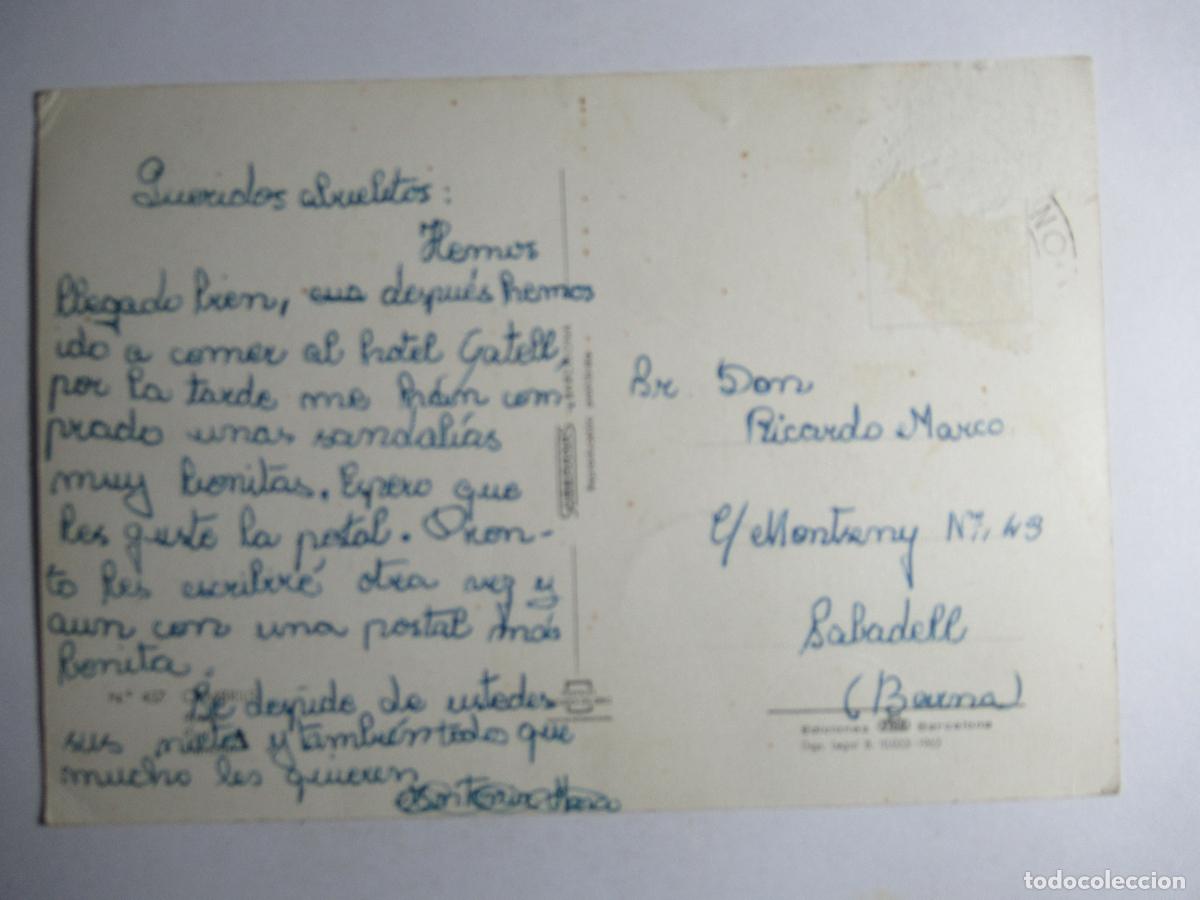 Queridos abuelitos:
Hemos
llegado bien, después hemos
ido a comer al hotel Gatell,
por la tarde me hán com-
prado unas sandalías
muy bonitas. Espero que
les guste la postal. Pron-
to les escribiré otra vez y
aun con una postal más
bonita.
Se despide de ustedes
sus nietos y tambíen todo que
mucho les quieren
Nº 407
Sr. Don
Ricardo Marco
C/ Montseny Nº 43
Sabadell
(Barna)
Ediciones Barcelona
SOBERANAS
NO
todocoleccion